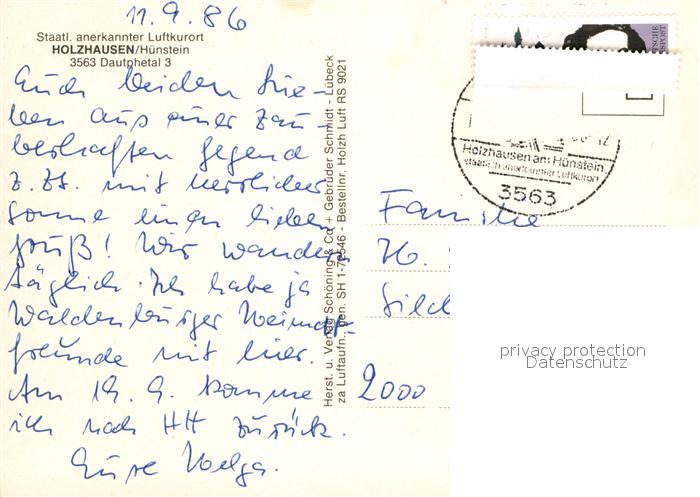 11.9.86
Staatl. anerkannter Luftkurort
HOLZHAUSEN/Hünstein
3563 Dautphetal 3
Euch beiden Lie-
ben aus einer zau-
berhaften Gegend
z. Zt. mit herrlicher
Sonne einen lieben
Gruß! Wir wandern
täglich. Ich habe ja
Waldenburger Heimat-
freunde mit hier.
Am 19. 9. komme
ich nach HH zurück.
Eure Helga.
Herst. u. Verlag Schöning & Co + Gebrüder Schmidt - Lübeck
za Luftaufn. gen. SH 1-Bestellnr. Holzh Luft RS 9021
Holzhausen am Hünstein
staatlich anerkannter Luftkurort
3563
Familie
H.
2000
privacy protection
Datenschutz